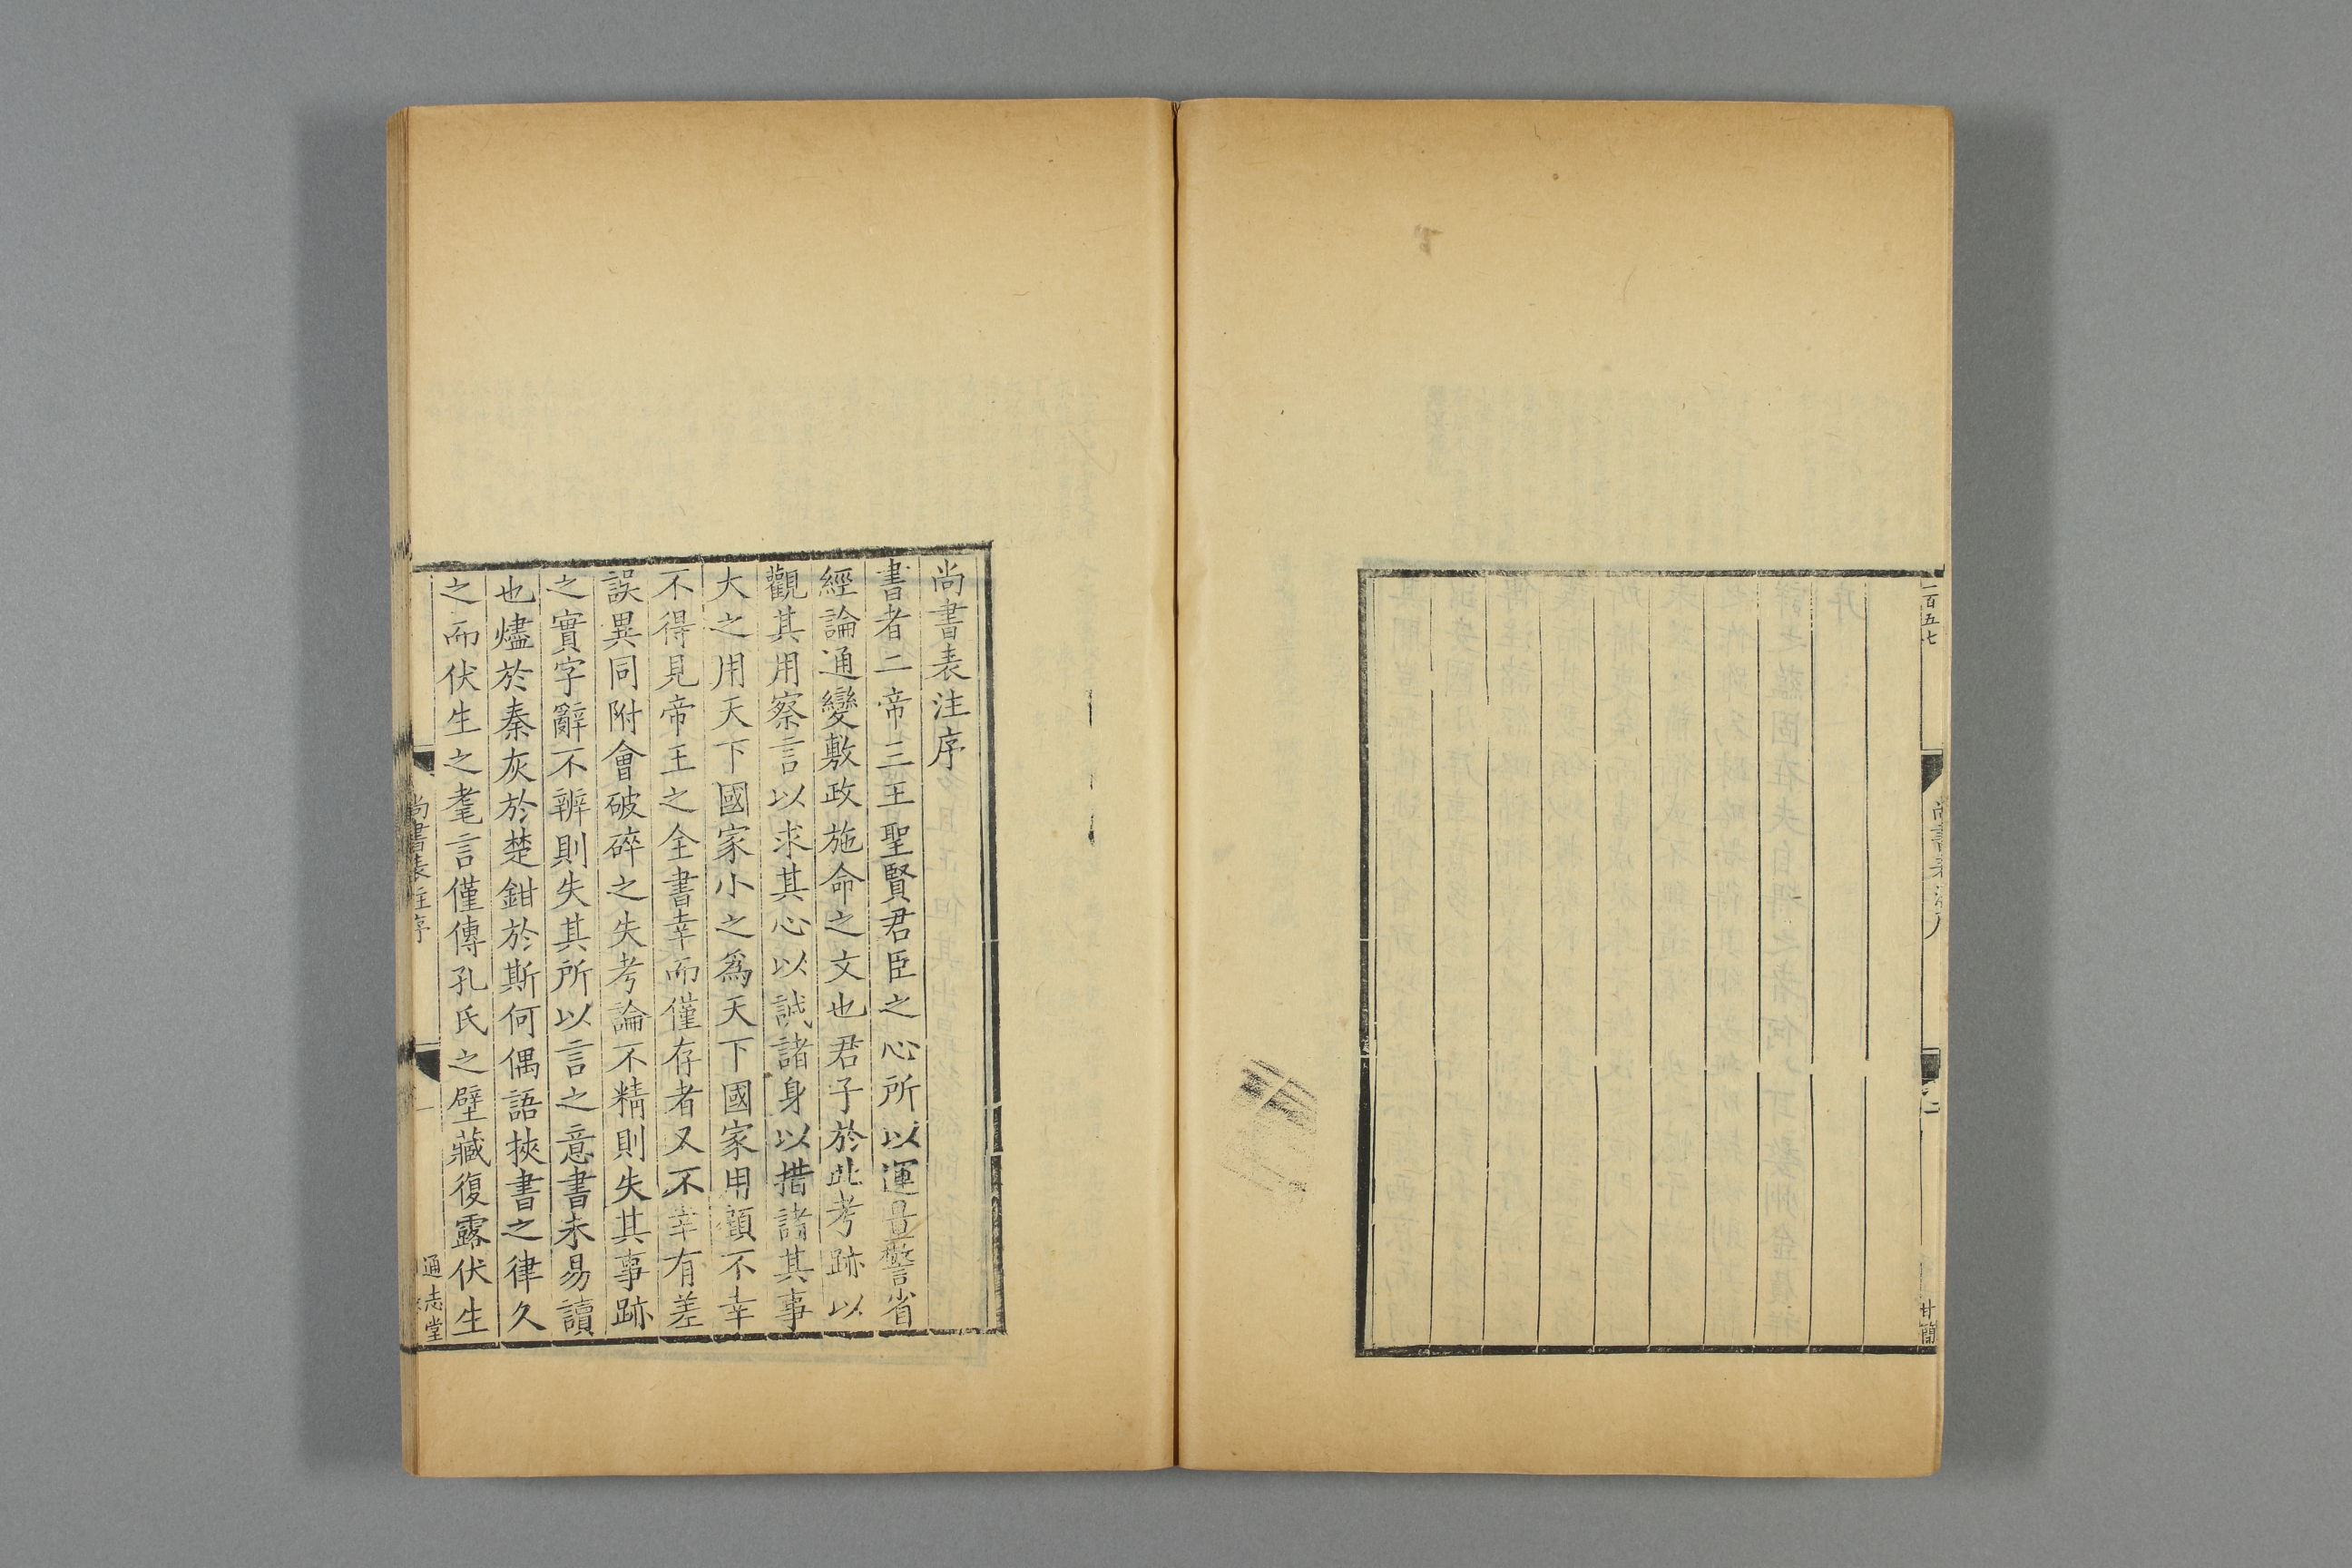 二百五七
尚書表注序
書者二帝三王聖賢君臣之心所以運量警省
經論通變敷政施命之文也君子於此考跡以
觀其用察言以求其心以誠諸身以措諸其事
大之用天下國家小之為天下國家用顧不幸
不得見帝王之全書幸而僅存者又不幸有差
誤異同附會破碎之失考論不精則失其事跡
之實字辭不辨則失其所以言之意書未易讀
也燼於秦灰於楚鉗於斯何偶語挾書之律久
之而伏生之耄言僅傳孔氏之壁藏復露伏生
尚書表注序
一
通志堂